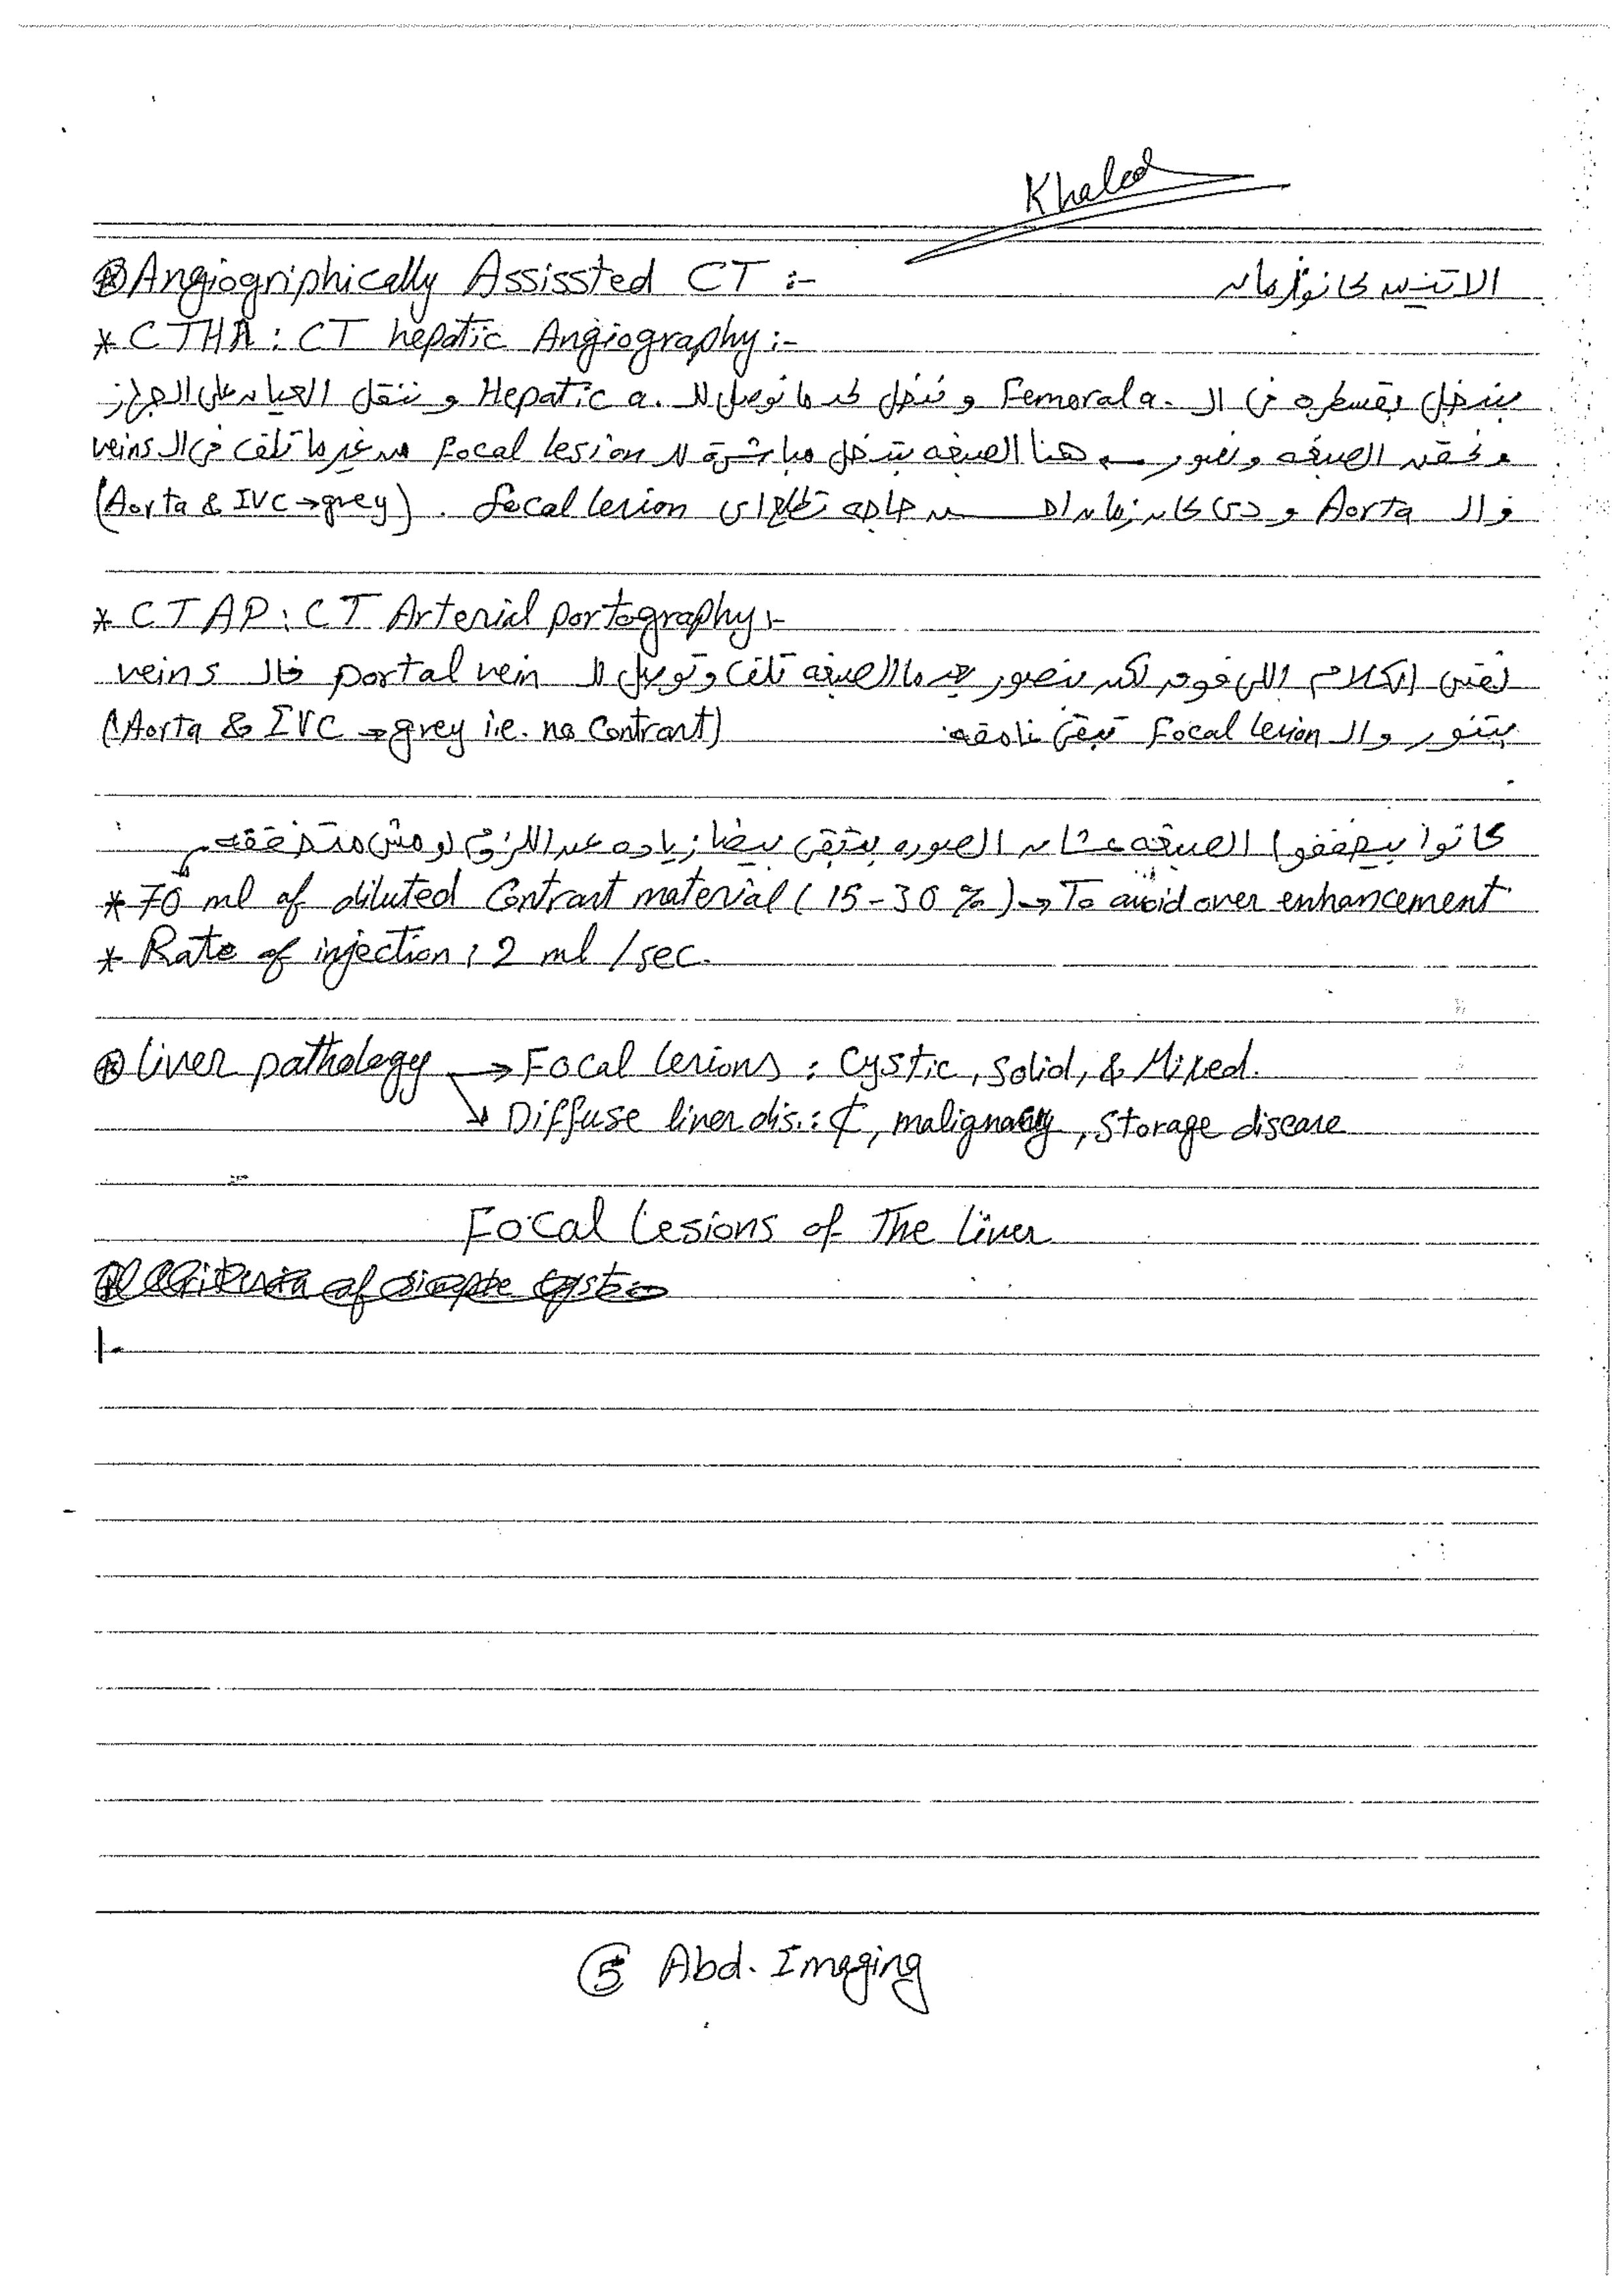 Khaled
⊛ Angiogriphically Assissted CT :- الاتنين كانوا زمان
* CTHA : CT hepatic Angiography :-
بندخل بقسطره في الـ Femoral a. و ندخل لحد ما نوصل للـ Hepatic a. و ننقل العيان على الجهاز
و نحقن الصبغه و نصور → هنا الصبغه بتدخل مباشرة للـ focal lesion من غير ما تلف في الـ veins
و الـ Aorta و دي كان زمان احسن حاجه تظهر اى focal lesion . (Aorta & IVC → grey)
* CTAP : CT Arterial portography :-
نفس الكلام اللى فوق لكن بنصور بعد ما الصبغه تلف و توصل للـ portal vein فالـ veins
بتنور و الـ Focal lesion تبقى غامقه. (Aorta & IVC → grey i.e. no Contrast)
كانوا بيخففوا الصبغه عشان الصوره بتبقى بيضا زياده عن اللزوم لو مش متخففه
* 70 ml of diluted Contrast material (15-30 %) → To avoid over enhancement
* Rate of injection : 2 ml /sec.
⊛ liver pathology → Focal lesions : Cystic, solid, & Mixed.
↘ Diffuse liver dis. : ₵, malignancy, storage disease
Focal Lesions of The liver
1-
⑤ Abd. Imaging